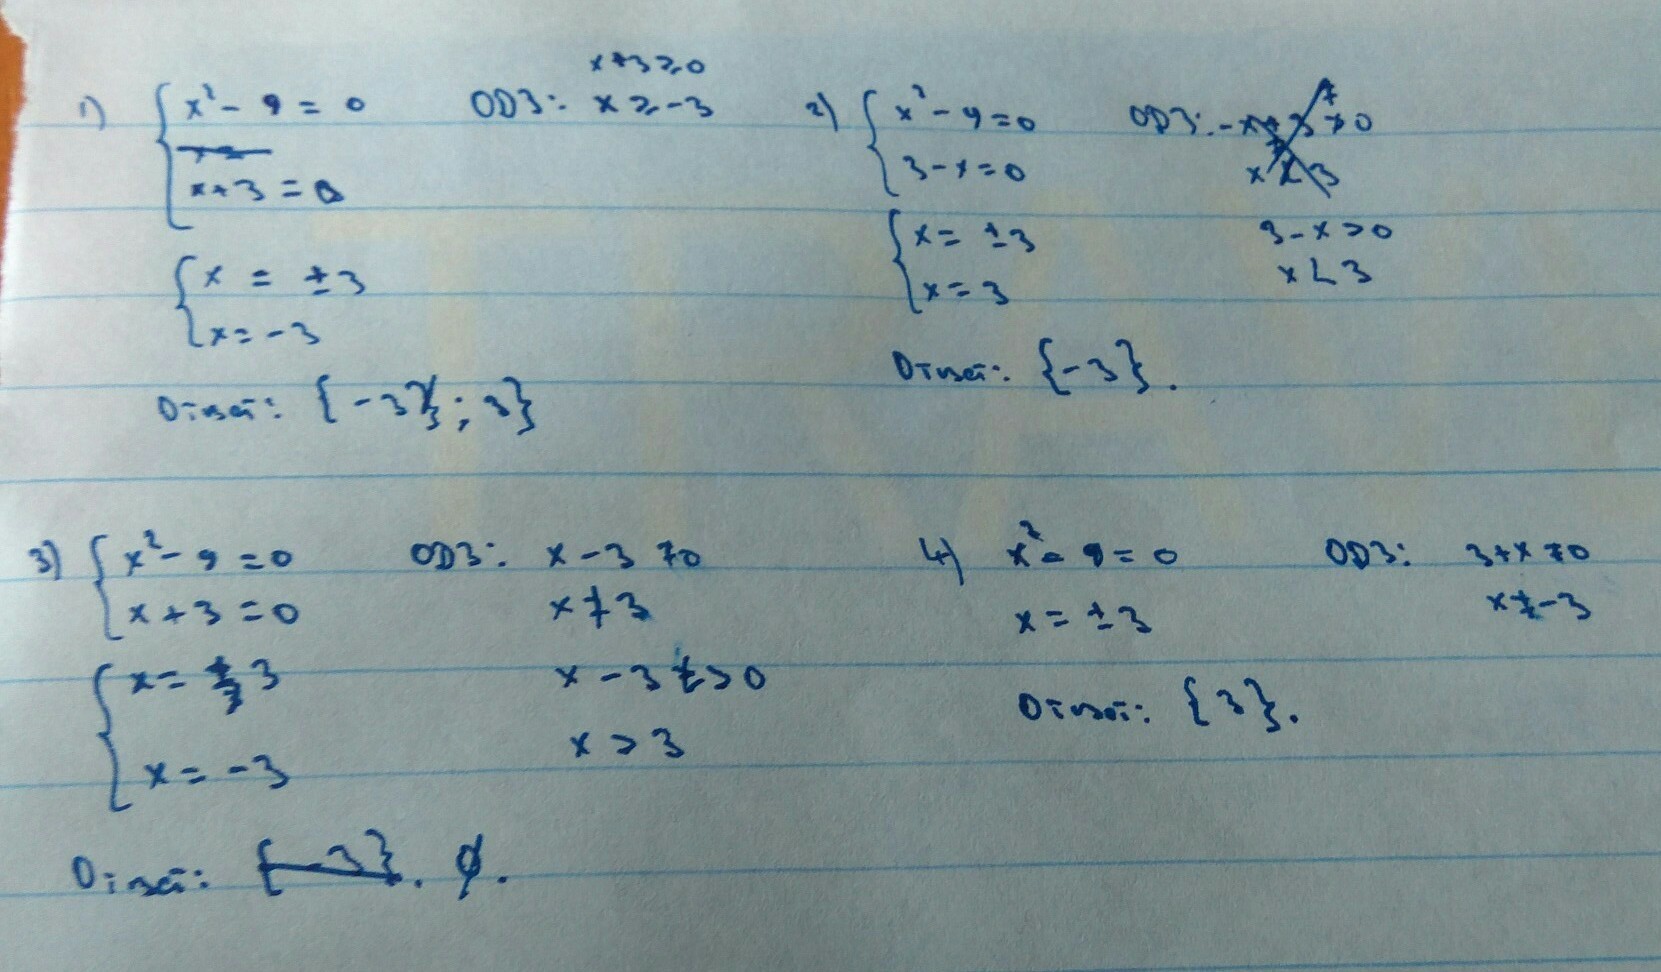 1) { x² - 9 = 0
x + 3 = 0
ОДЗ: x+3 ≥ 0
x ≥ -3
{ x = ±3
x = -3
Ответ: {-3; 3}
2) { x² - 9 = 0
3 - x = 0
ОДЗ: -x+3 ≠ 0
x < 3
{ x = ±3
x = 3
3 - x > 0
x < 3
Ответ: {-3}.
3) { x² - 9 = 0
x + 3 = 0
ОДЗ: x - 3 ≠ 0
x ≠ 3
{ x = ±3
x = -3
x - 3 > 0
x > 3
Ответ: {-3}. ∅.
4) x² - 9 = 0
x = ±3
ОДЗ: 3+x ≠ 0
x ≠ -3
Ответ: {3}.